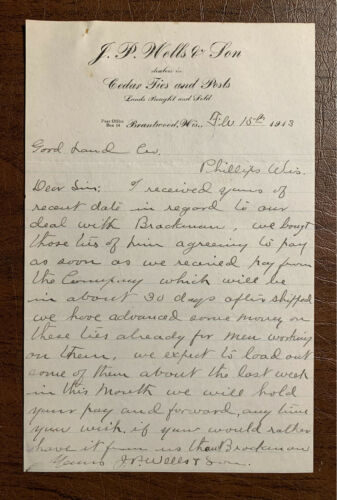 J. P. Wells & Son
dealers in
Cedar Ties and Posts
Lands Bought and Sold
Post Office
Box 14
Brantwood, Wis., Feb 15th 1913
Good Land Co.
Phillips Wis.
Dear Sir; I received yours of
recent date in regard to our
deal with Brackman, we bougt
those ties of him agreeing to pay
as soon as we received pay from
the Company which will be
in about 30 days after shipped
we have advanced some money on
these ties already for men working
on them, we expect to load out
some of them about the last week
in this Month we will hold
your pay and forward, any time
you wish, if you would rather
have it from us than Brackman
Yours J.P. Wells & Son.